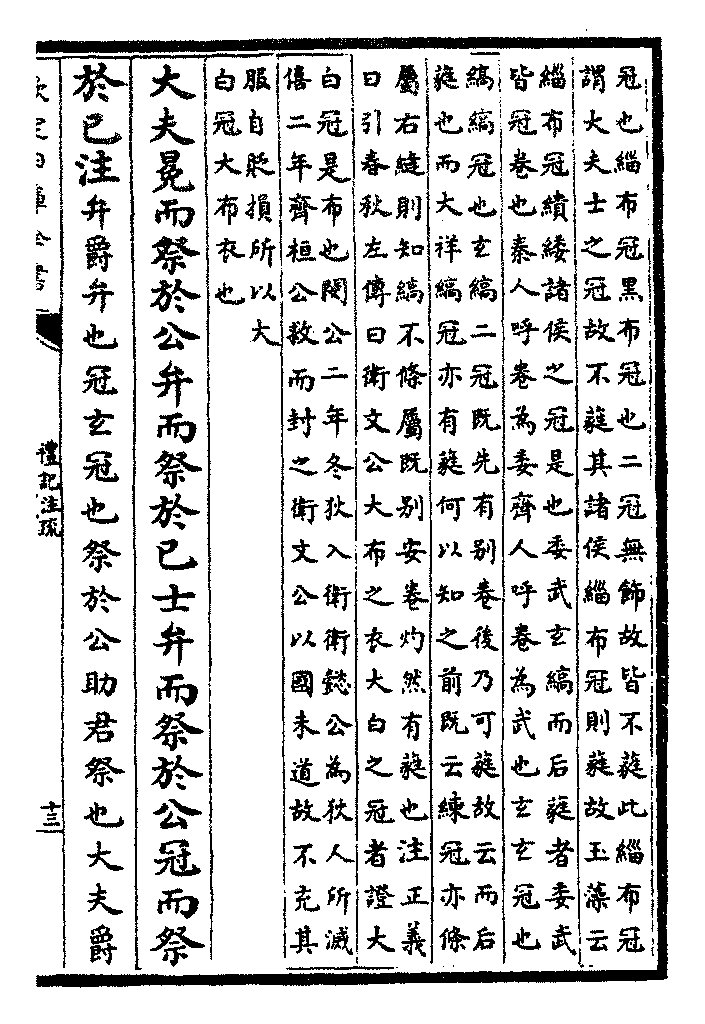 冠也緇布冠黑布冠也二冠無飾故皆不蕤此緇布冠
謂大夫士之冠故不蕤其諸侯緇布冠則蕤故玉藻云
緇布冠繢緌諸侯之冠是也委武玄縞而后蕤者委武
皆冠卷也秦人呼卷為委齊人呼卷為武也玄玄冠也
縞縞冠也玄縞二冠既先有别卷後乃可蕤故云而后
蕤也而大祥縞冠亦有蕤何以知之前既云練冠亦條
屬右縫則知縞不條屬既别安卷灼然有蕤也注正義
曰引春秋左傳曰衛文公大布之衣大白之冠者證大
白冠是布也閔公二年冬狄入衛衛懿公為狄人所滅
僖二年齊桓公救而封之衛文公以國未道故不充其
服自貶損所以大
白冠大布衣也
大夫冕而祭於公弁而祭於已士弁而祭於公冠而祭
於已注弁爵弁也冠玄冠也祭於公助君祭也大夫爵
欽定四庫全書
禮記注疏
十三